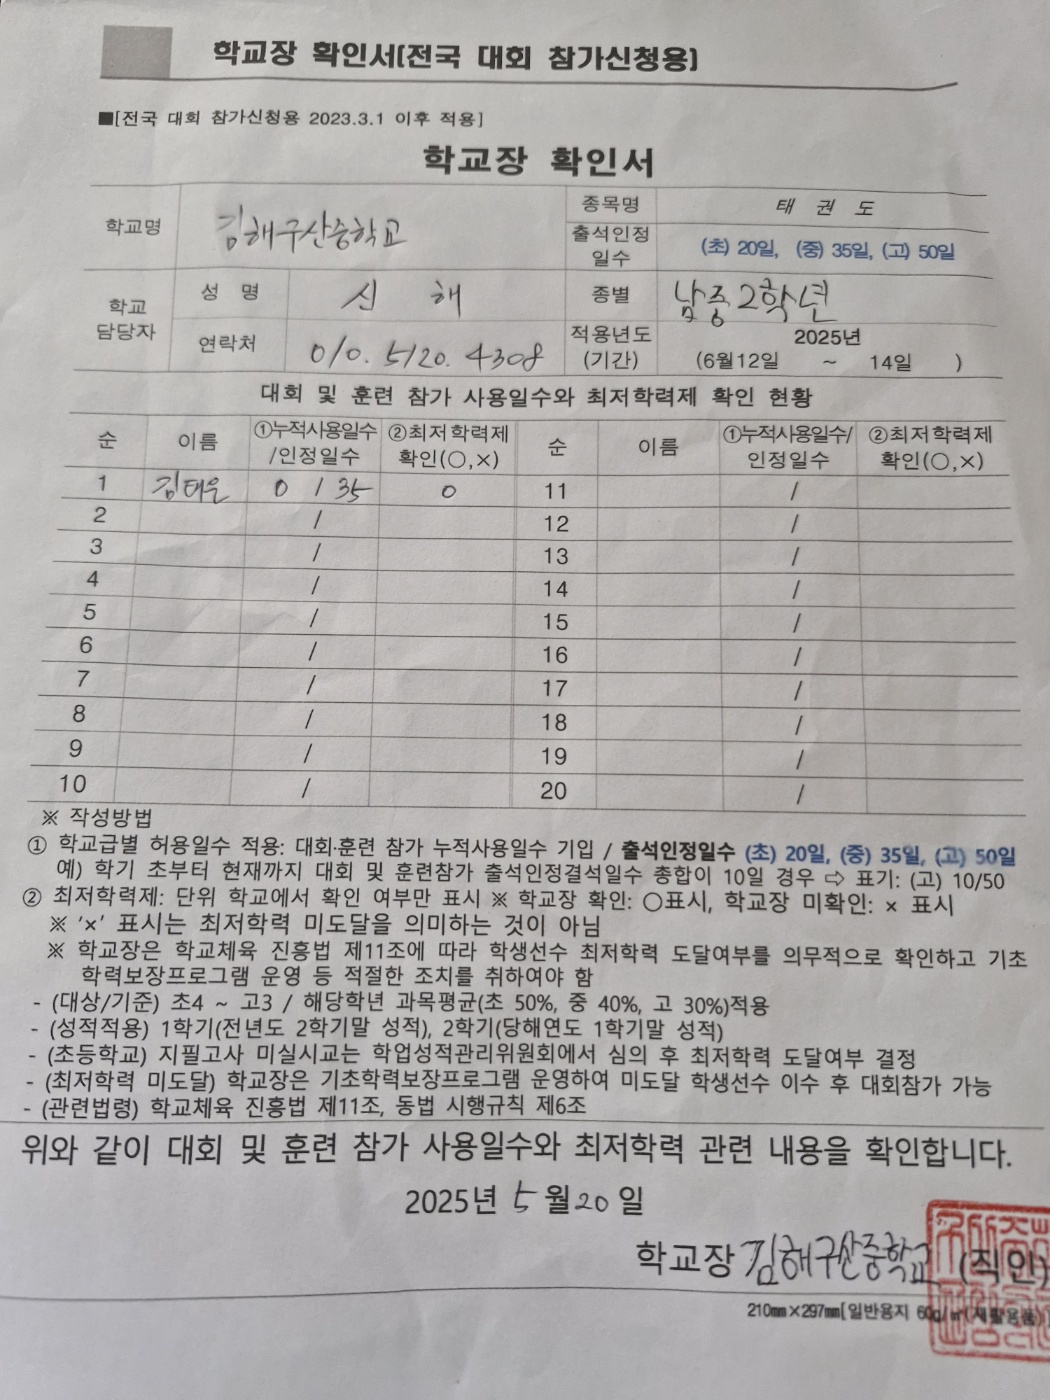 학교장 확인서(전국 대회 참가신청용)
■[전국 대회 참가신청용 2023.3.1 이후 적용]
학교장 확인서
학교명 김해구산중학교 종목명 태 권 도
출석인정 일수 (초) 20일, (중) 35일, (고) 50일
학교 담당자 성 명 신 해 종별 남중2학년
연락처 010. 5120. 4308 적용년도 (기간) 2025년 (6월12일 ~ 14일 )
대회 및 훈련 참가 사용일수와 최저학력제 확인 현황
순 이름 ①누적사용일수/인정일수 ②최저학력제 확인(○,×) 순 이름 ①누적사용일수/인정일수 ②최저학력제 확인(○,×)
1 김태윤 0 / 35 ○ 11 /
2 / 12 /
3 / 13 /
4 / 14 /
5 / 15 /
6 / 16 /
7 / 17 /
8 / 18 /
9 / 19 /
10 / 20 /
※ 작성방법
① 학교급별 허용일수 적용: 대회·훈련 참가 누적사용일수 기입 / 출석인정일수 (초) 20일, (중) 35일, (고) 50일
예) 학기 초부터 현재까지 대회 및 훈련참가 출석인정결석일수 총합이 10일 경우 ⇨ 표기: (고) 10/50
② 최저학력제: 단위 학교에서 확인 여부만 표시 ※ 학교장 확인: ○표시, 학교장 미확인: × 표시
※ ‘×’ 표시는 최저학력 미도달을 의미하는 것이 아님
※ 학교장은 학교체육 진흥법 제11조에 따라 학생선수 최저학력 도달여부를 의무적으로 확인하고 기초
학력보장프로그램 운영 등 적절한 조치를 취하여야 함
- (대상/기준) 초4 ~ 고3 / 해당학년 과목평균(초 50%, 중 40%, 고 30%)적용
- (성적적용) 1학기(전년도 2학기말 성적), 2학기(당해연도 1학기말 성적)
- (초등학교) 지필고사 미실시교는 학업성적관리위원회에서 심의 후 최저학력 도달여부 결정
- (최저학력 미도달) 학교장은 기초학력보장프로그램 운영하여 미도달 학생선수 이수 후 대회참가 가능
- (관련법령) 학교체육 진흥법 제11조, 동법 시행규칙 제6조
위와 같이 대회 및 훈련 참가 사용일수와 최저학력 관련 내용을 확인합니다.
2025년 5 월 20 일
학교장 김해구산중학교 (직인)
210㎜×297㎜[일반용지 60g/㎡(재활용품)]